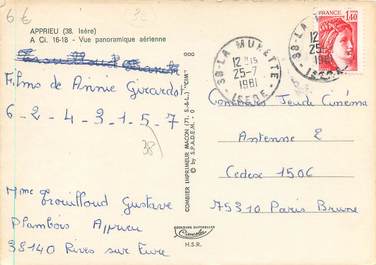 6€
APPRIEU (38. Isère)
A Cl. 16-18 - Vue panoramique aérienne
Films de Annie Girardot
6-2-4-3-1-5-7
38
Mme Trouilloud Gustave
Plambois Apprieu
38140 Rives sur Fure
COMBIER IMPRIMEUR MACON (71. S.-&-L.) "CIM"
© by S.P.A.D.E.M.
COMBIER
H.S.R.
38-LA MURETTE
12H15
25-7
1981
ISERE
38-LA MURETTE
12H
25-
1981
ISERE
FRANCE
1,40
Concours Jeudi Cinéma
Antenne 2
Cedex 1506
75310 Paris Brune